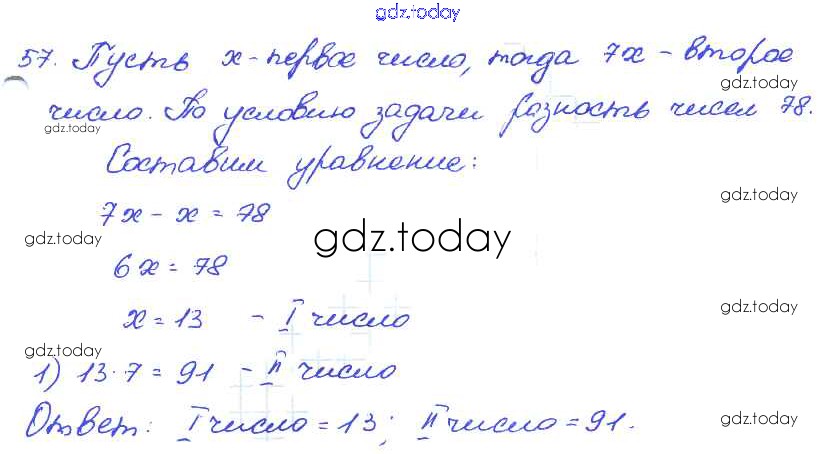 gdz.today
57. Пусть x - первое число, тогда 7x - второе
gdz.today
число. По условию задачи разность чисел 78.
gdz.today
gdz.today
Составим уравнение:
gdz.today
7x - x = 78
gdz.today
gdz.today
6x = 78
x = 13 - I число
gdz.today
gdz.today
1) 13 · 7 = 91 - II число
Ответ: I число = 13; II число = 91.
gdz.today